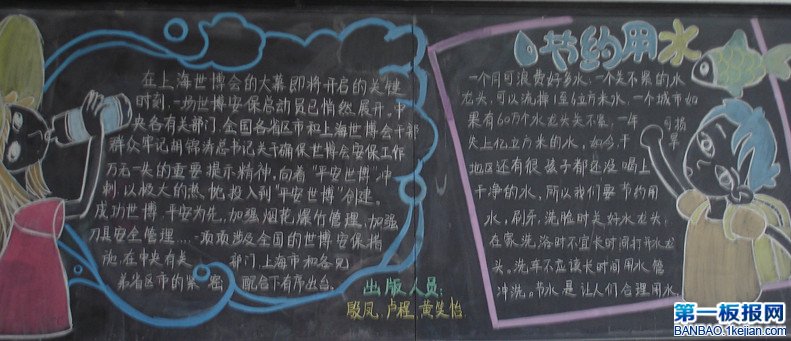 在上海世博会的大幕即将开启的关键
时刻,一场世博安保总动员已悄然展开。中
央各有关部门,全国各省区市和上海世博会干部
群众牢记胡锦涛总书记关于确保世博会安保工作
万无一失的重要提示精神,向着"平安世博"冲
刺,以极大的热忱投入到"平安世博"创建。
成功世博,平安为先,加强烟花爆竹管理,加强
刀具安全管理……一项项涉及全国的世博安保措
施,在中央有关部门,上海市和各兄
弟省区市的紧密配合下有序出台。
出版人员:
殷凤,卢程,黄笑怡.
节约用水
一个月可浪费好多水,一个关不累的水
龙头,可以流掉1至6立方米水,一个城市如
果有60万个水龙头关不紧,一年可损
失上亿立方米的水,如今,干旱
地区还有很多孩子都还没喝上
干净的水,所以我们要节约用
水,刷牙,洗脸时关好水龙头,
在家洗浴时不宜长时间打开水龙
头,洗车不应该长时间用水管
冲洗。节水是让人们合理用水,
第一板报网
BANBAO.1kejian.com